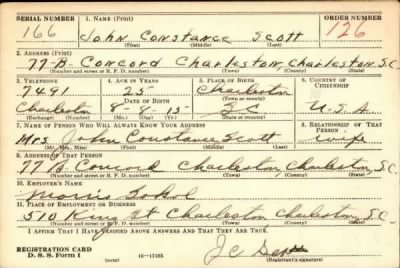 SERIAL NUMBER 1. NAME (Print) ORDER NUMBER
166 John Constance Scott 126
(First) (Middle) (Last)
2. ADDRESS (Print)
77-B- Concord Charleston, Charleston, S.C.
(Number and street or R. F. D. number) (Town) (County) (State)
3. TELEPHONE 4. AGE IN YEARS 5. PLACE OF BIRTH 6. COUNTRY OF CITIZENSHIP
7491 25 Charleston
DATE OF BIRTH (Town or county)
Charleston 8-8-15 S.C. U.S.A.
(Exchange) (Number) (Mo.) (Day) (Yr.) (State or country)
7. NAME OF PERSON WHO WILL ALWAYS KNOW YOUR ADDRESS 8. RELATIONSHIP OF THAT PERSON
Mrs John Constance Scott wife
(Mr., Mrs., Miss) (First) (Middle) (Last)
9. ADDRESS OF THAT PERSON
77 B Concord Charleston, Charleston, S.C.
(Number and street or R. F. D. number) (Town) (County) (State)
10. EMPLOYER'S NAME
Morris Sokol
11. PLACE OF EMPLOYMENT OR BUSINESS
510 King St Charleston Charleston, S.C.
(Number and street or R. F. D. number) (Town) (County) (State)
I AFFIRM THAT I HAVE VERIFIED ABOVE ANSWERS AND THAT THEY ARE TRUE.
REGISTRATION CARD
D. S. S. Form 1 (over) 16—17105 J C Scott
(Registrant's signature)